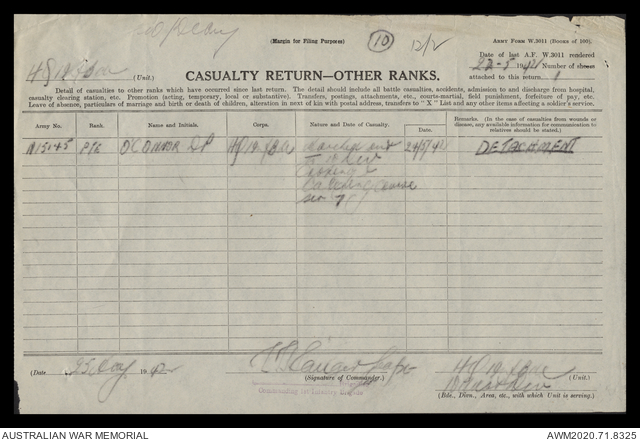 (Margin for Filing Purposes)
10
12/2
ARMY FORM W.3011 (Books of 100).
Date of last A.F. W.3011 rendered
22-5 1942 Number of sheets
attached to this return 1
(Unit.)
CASUALTY RETURN—OTHER RANKS.
Detail of casualties to other ranks which have occurred since last return. The detail should include all battle casualties, accidents, admission to and discharge from hospital,
casualty clearing station, etc. Promotion (acting, temporary, local or substantive). Transfers, postings, attachments, etc., courts-martial, field punishment, forfeiture of pay, etc.
Leave of absence, particulars of marriage and birth or death of children, alteration in next of kin with postal address, transfers to "X" List and any other items affecting a soldier's service.
Army No. Rank. Name and Initials. Corps. Nature and Date of Casualty. Date. Remarks. (In the case of casualties from wounds or disease, any available information for communication to relatives should be stated.)
N15045 Pte O'CONNOR DP Marched out 24/5/42 DETACHMENT
To 10 Div
Cooking &
Catering Course
(Date 25 May 1942
(Signature of Commander.)
(Unit.)
(Bde., Divn., Area, etc., with which Unit is serving.)
AUSTRALIAN WAR MEMORIAL
AWM2020.71.8325